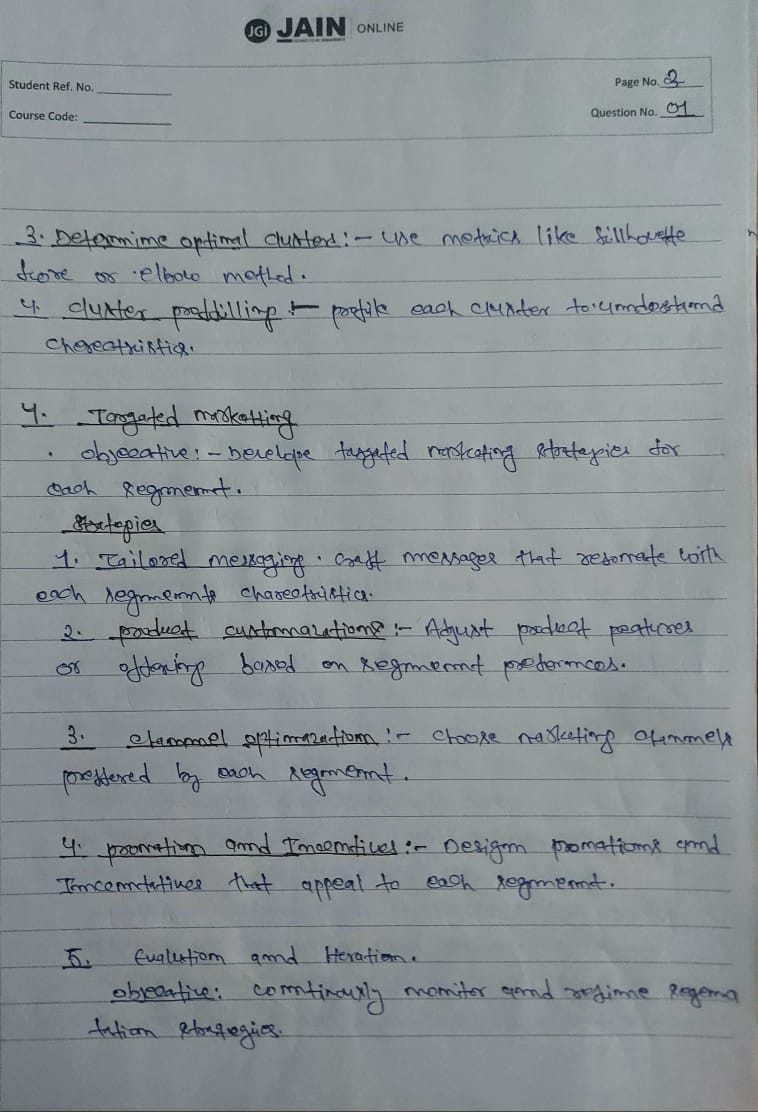 JGI JAIN ONLINE
Student Ref. No.
Page No. 2
Course Code:
Question No. 01
3. Determime optimal clusters:- use metrics like Sillhouette
Score or elbow method.
4. cluster proffilling :- profile each cluster to understamd
Charectristics.
4. Targated marketting
. objecative:- Develope targated marketing strategies for
each segmemnt.
Strategies
1. Tailored messaging. Craft messages that resomate with
each segmemnts charectristics.
2. product customazations :- Adjust product features
or offering based on segmemnt preferemces.
3. chammel optimazatiom :- choose marketing chammels
preffered by each segmemnt.
4. promotiom amd Imcemtives :- Desigm promations amd
Imcemtatives that appeal to each segmemnt.
5. Evalutiom amd Iteratiom.
objecative: comtinously momitor amd refime segema
tation strategies.